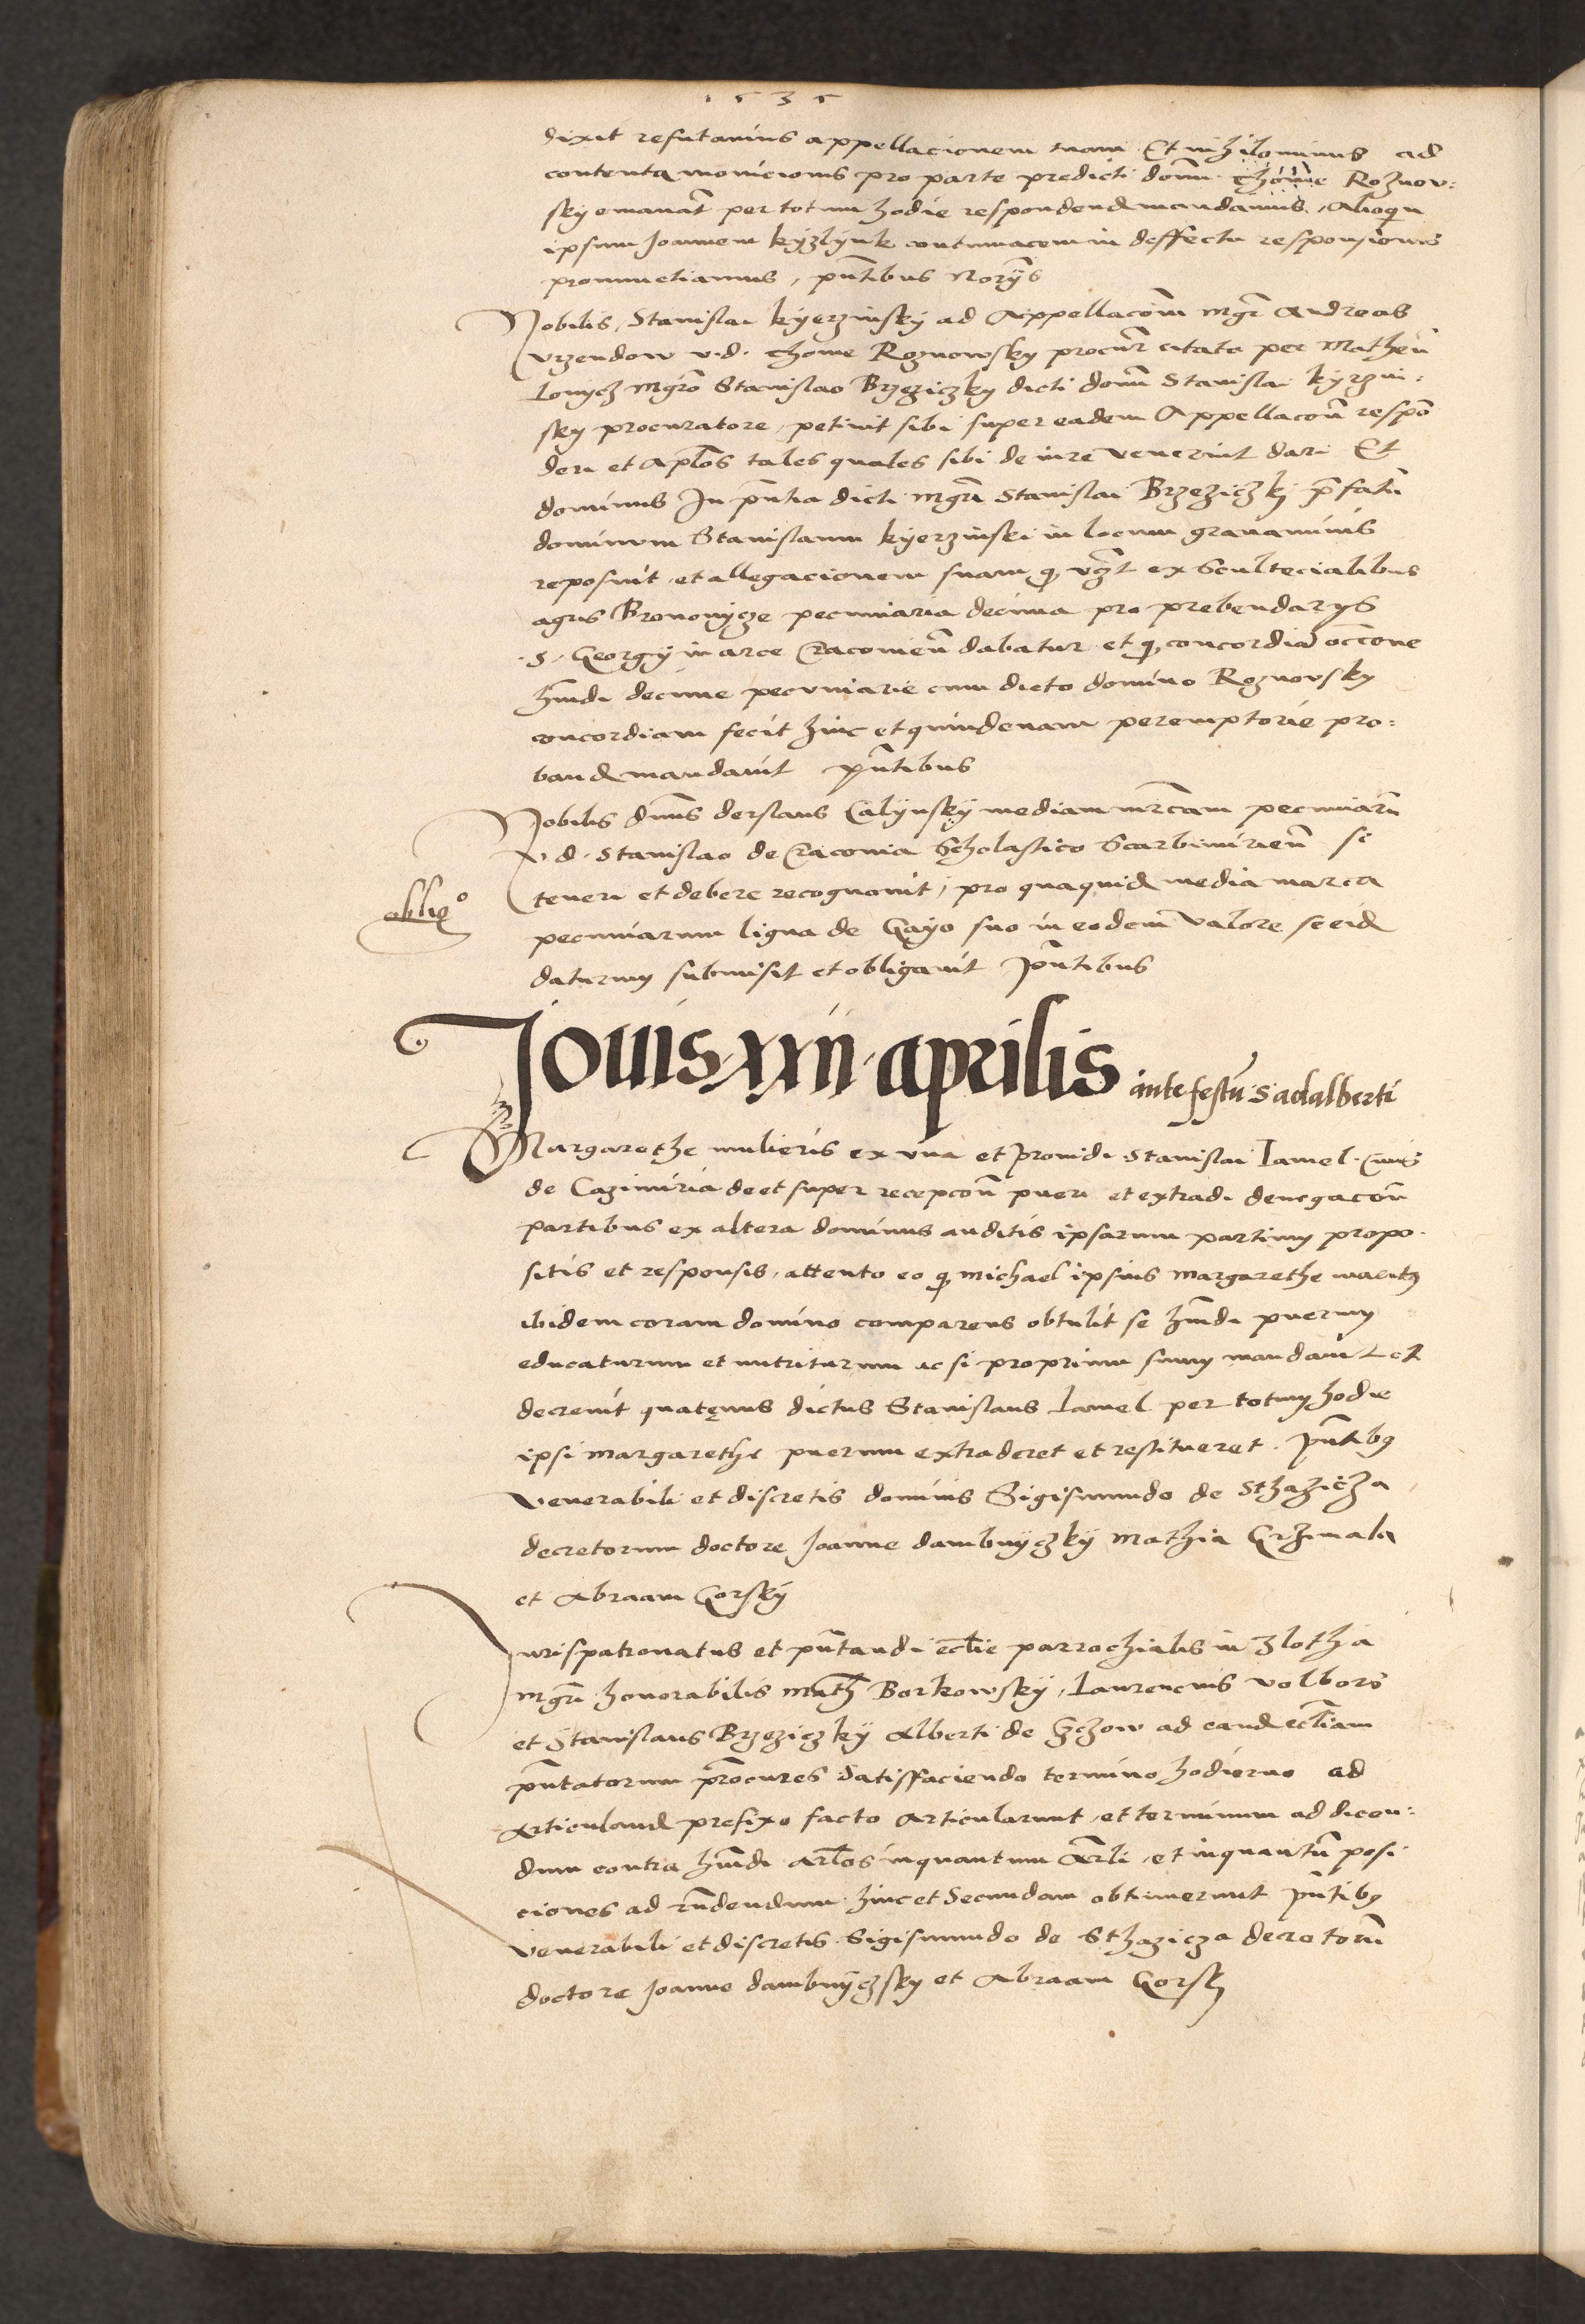 1535
dixit refutamus appellacionem tuam Et nihilominus ad
contenta monicionis pro parte predicti domni Thome Roznow:
sky emanat per totum hodie respondend mandamus, Alioqui
ipsum Joannem kyzlynk contumacem in deffectu responsionis
pronunctiamus, pntibus Norys
Nobilis Stanislai kyerzinsky ad Appellacom mgri Andreas
Vrzendow v. d. Thome Roznowsky procur citata per Matheu
Lonycz mgro Stanislao Brzeziczky dicti domi Stanislai kyrzin:
sky procuratore, petiuit sibi super eadem Appellacom respo
deri et Aplos tales quales sibi de iure venerint dari Et
dominus In pntia dicti Mgri Stanislai Brzeziczky prfatu
dominum Stanislaum kyerzinski in locum grauaminis
reposuit, et allegacionem suam q vz ex Scultecialibus
agris Bronowycze pecuniaria decima pro prebendarys
S. Georgy in arce Cracouien dabatur et q concordia occone
hmdi decime pecuniarie cum dicto domino Roznovsky
concordiam fecit hinc et quindenam peremptorie pro:
band mandauit pntibus
Nobilis dnus derslaus Calynsky mediam mrcam pecuniaru
v. d. Stanislao de Cracouia Scholastico Scarbimirien se
teneri et debere recognouit, pro quaquid media marca
obligo
pecuniarum ligna de Gayo suo in eodem valore se eid
daturum submisit et obligauit pntibus
Jouis xxii aprilis ante festu S adalberti
Margarethe mulieris ex vna et prouidi Stanislai Iamel Ciuis
de Cazimiria de et super recepcon pueri et extradi denegacon
partibus ex altera dominus auditis ipsarum partium propo
sitis et responsis, attento eo q michael ipsius margarethe maritus
ibidem coram domino comparens obtulit se hmdi puerum
educaturum et nutriturum ac si proprium suum mandauit et
decreuit quatenus dictus Stanislaus Iamel per totum hodie
ipsi margarethe puerum extraderet et restitueret. pntibus
Venerabili et discretis dominis Sigismundo de Sthazicza
decretorum doctore Joanne dambnyczky Mathia Grzimala
et Abraam Gorsky
Jurispatronatus et pntandi eclie parrochialis in Zlotha
mgri honorabilis math Borkowsky, Laurencius Volbors
et Stanislaus Brzeziczky Alberti de ad eand ecliam
pntatorum procures Satisffaciendo termino hodierno ad
Articuland prefixo facto Articularunt, et terminum ad dicen:
dum contra hmdi arlos inquantum Arli, et inquantum posi
ciones ad rndendum hinc et Secundam obtinuerunt pntibus
Venerabili et discretis Sigismundo de Sthazicza decretorum
doctore Joanne dambnyczsky et Abraam Gorsky